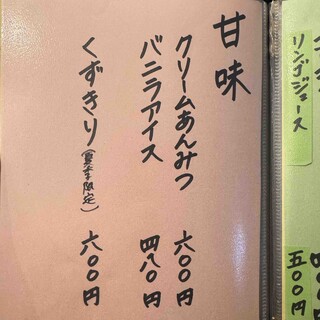 甘味
クリームあんみつ 六〇〇円
バニラアイス 四八〇円
くずきり(夏季限定) 六〇〇円
リンゴジュース 五〇〇円